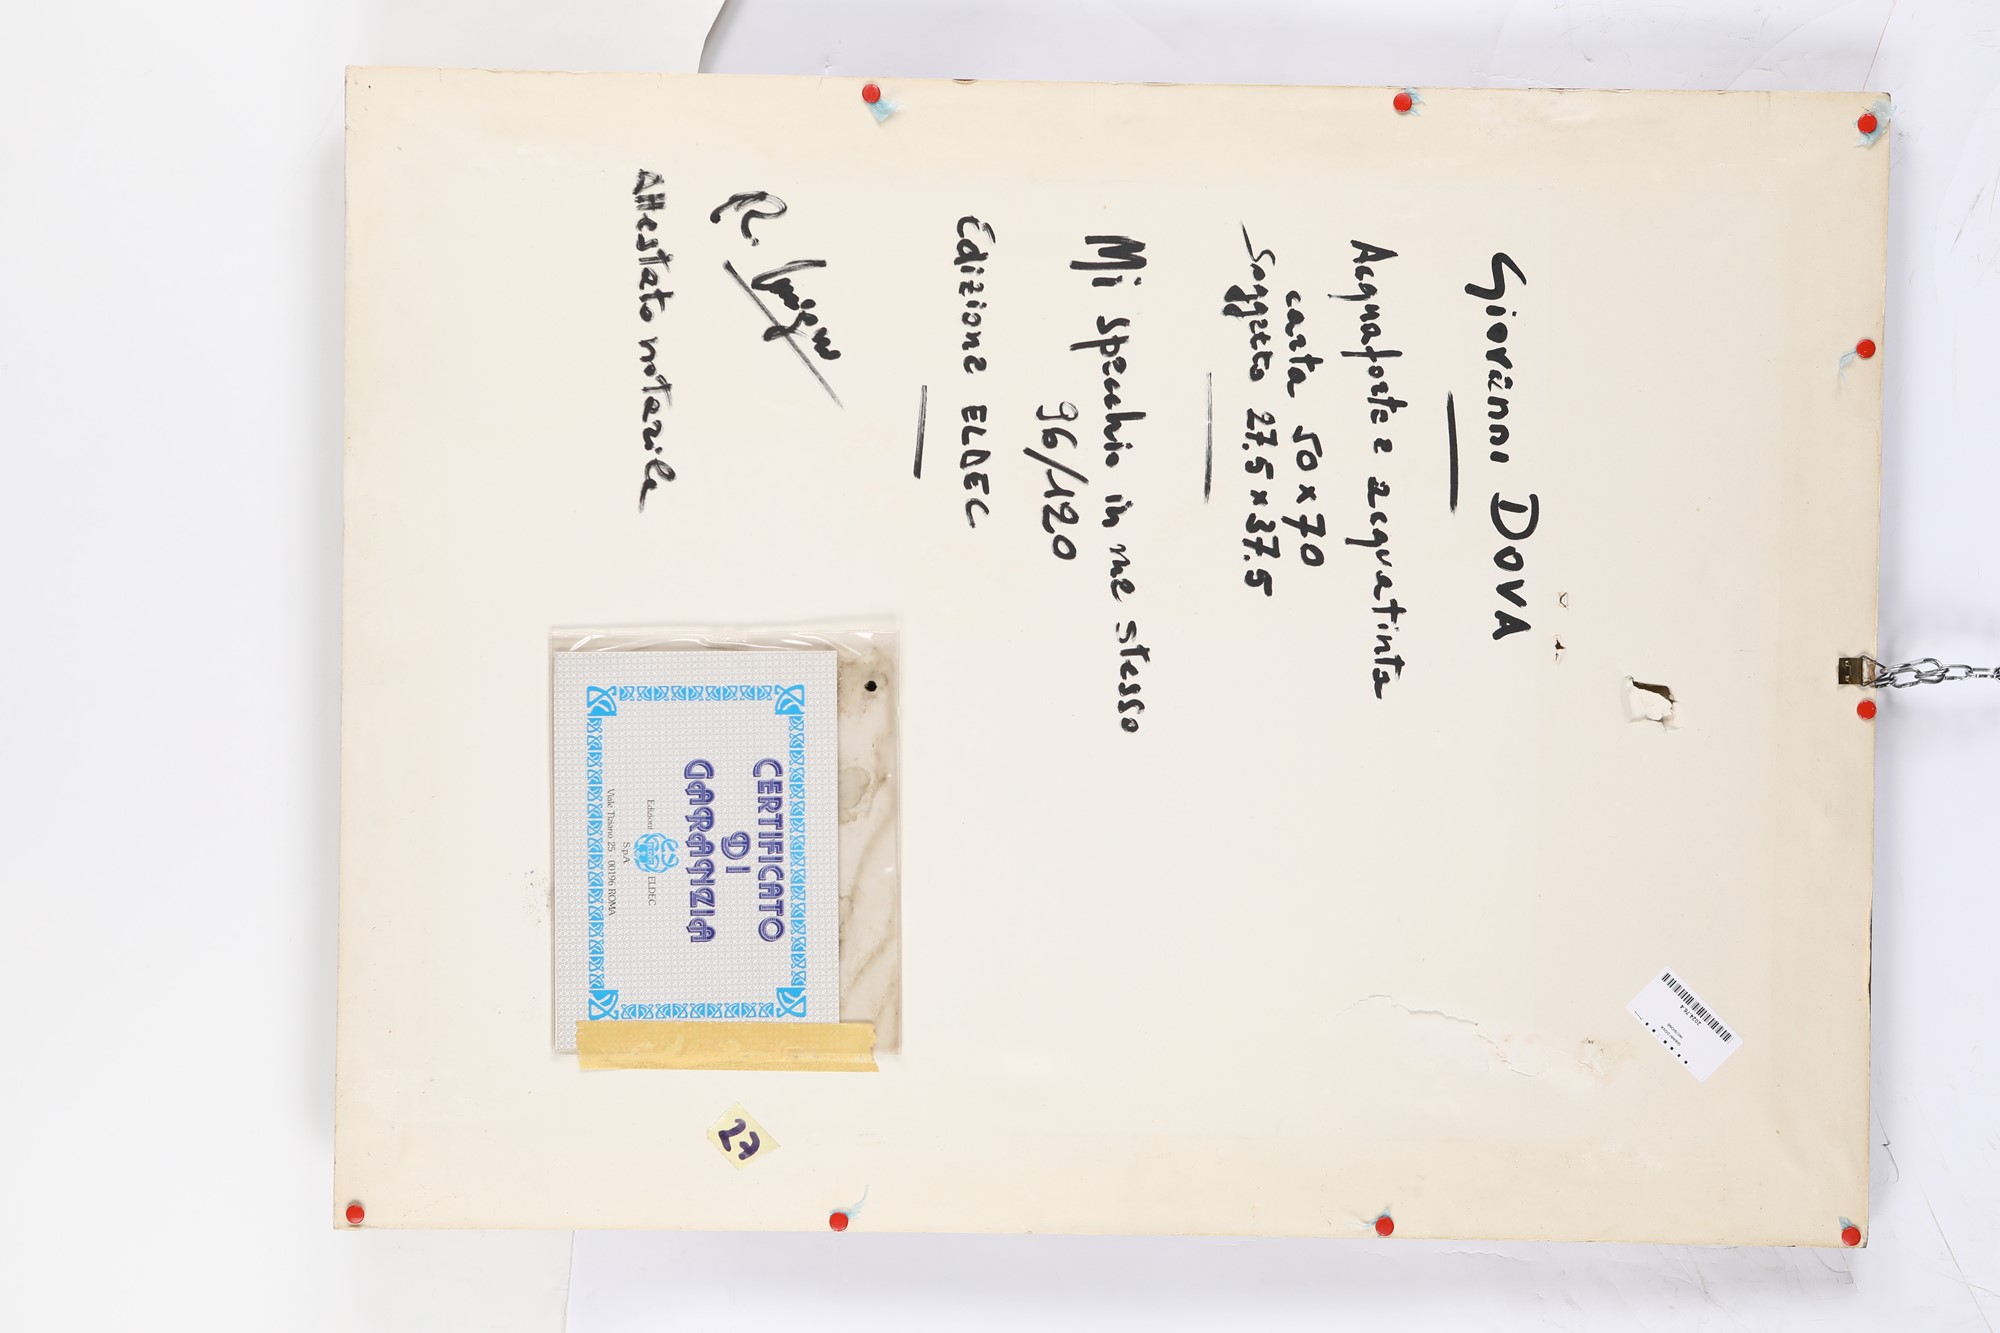 Giovanni DOVA
Acquaforte e acquatinta
carta 50 x 70
Soggetto 27.5 x 37.5
Mi specchio in me stesso
96/120
Edizione ELDEC
R.
Attestato notarile
CERTIFICATO
DI
GARANZIA
Edizioni ELDEC
S.p.A.
Viale Tiziano 25 - 00196 ROMA
27
2024.76.4